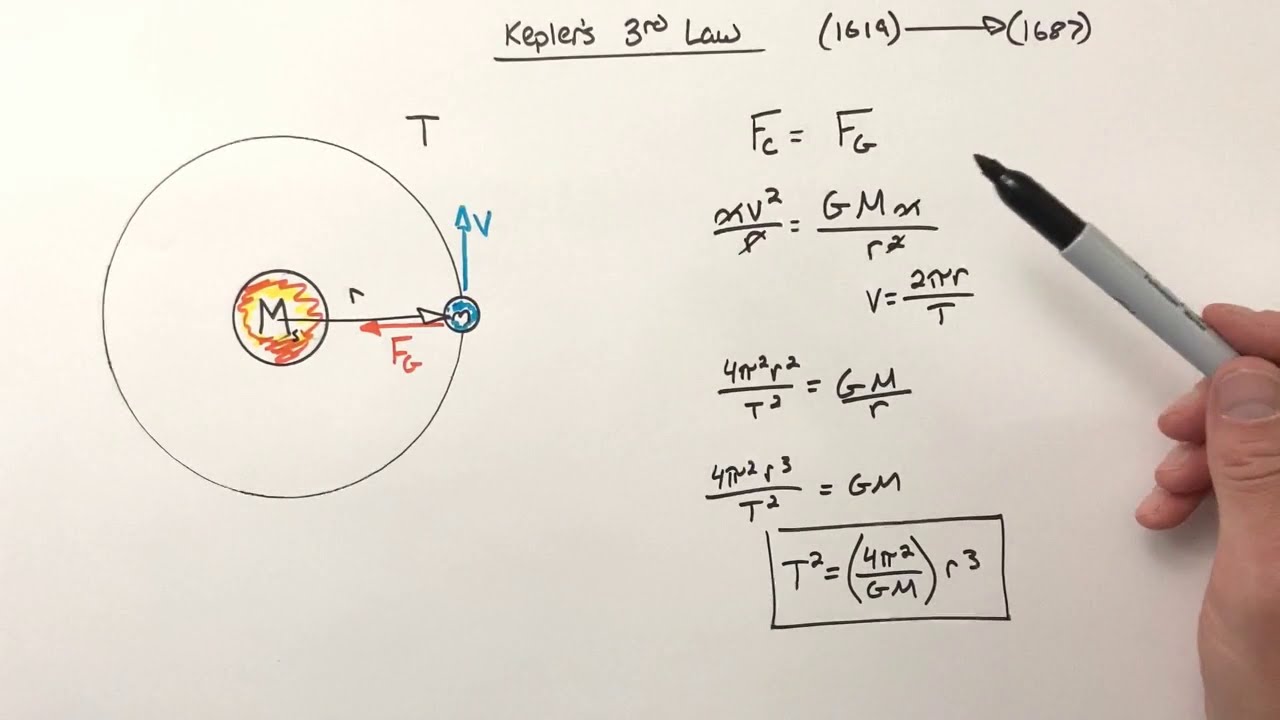 Kepler's 3rd Law (1619) → (1687)
T
V
r
Ms
m
F_G
F_C = F_G
mv²/r = GMm/r²
V = 2πr/T
4π²r²/T² = GM/r
4π²r³/T² = GM
T² = (4π²/GM) r³